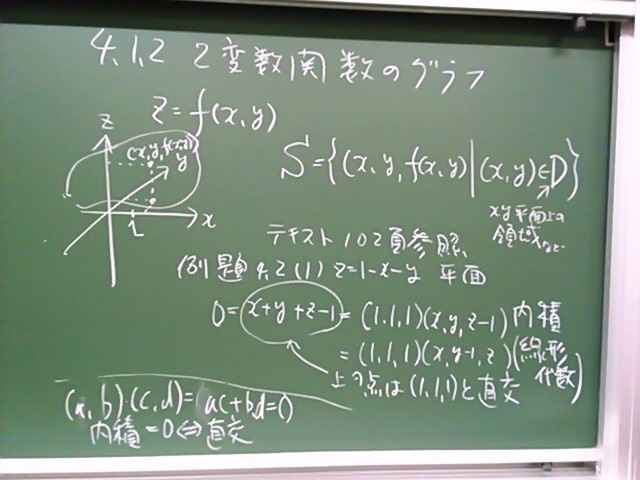 4.1.2 2変数関数のグラフ
z=f(x,y)
z
(x,y,f(x,y))
y
x
1
S={(x,y,f(x,y)|(x,y)∈D}
xy平面上の
領域など
テキスト102頁参照、
例題4.2(1) z=1-x-y 平面
0=x+y+z-1=(1,1,1)(x,y,z-1)内積
=(1,1,1)(x,y-1,z)(線形
代数)
上の点は(1,1,1)と直交
(a,b)・(c,d)=ac+bd=0
内積=0⇔直交